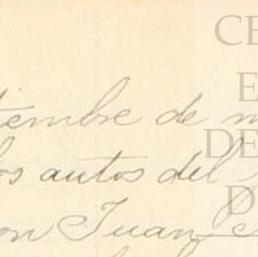 tiembre de m
los autos del
on Juan
CE
E
DE
D